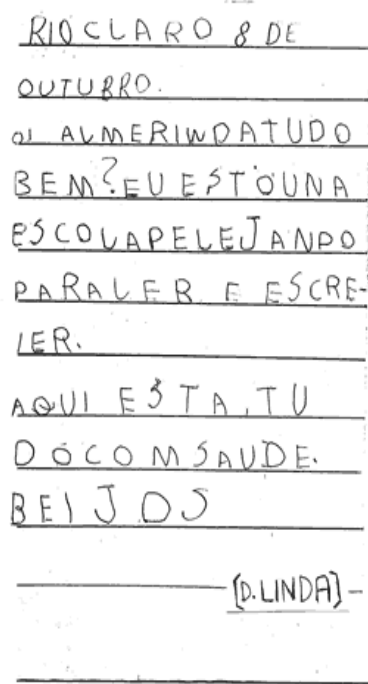 RIO CLARO 8 DE
OUTUBRO.
OI ALMERINDATUDO
BEM? EU ESTOUNA
ESCOLAPELEJANDO
PARALER E ESCRE-
VER.
AQUI ESTA, TU
DOCOMSAUDE.
BEIJOS
(D.LINDA)-